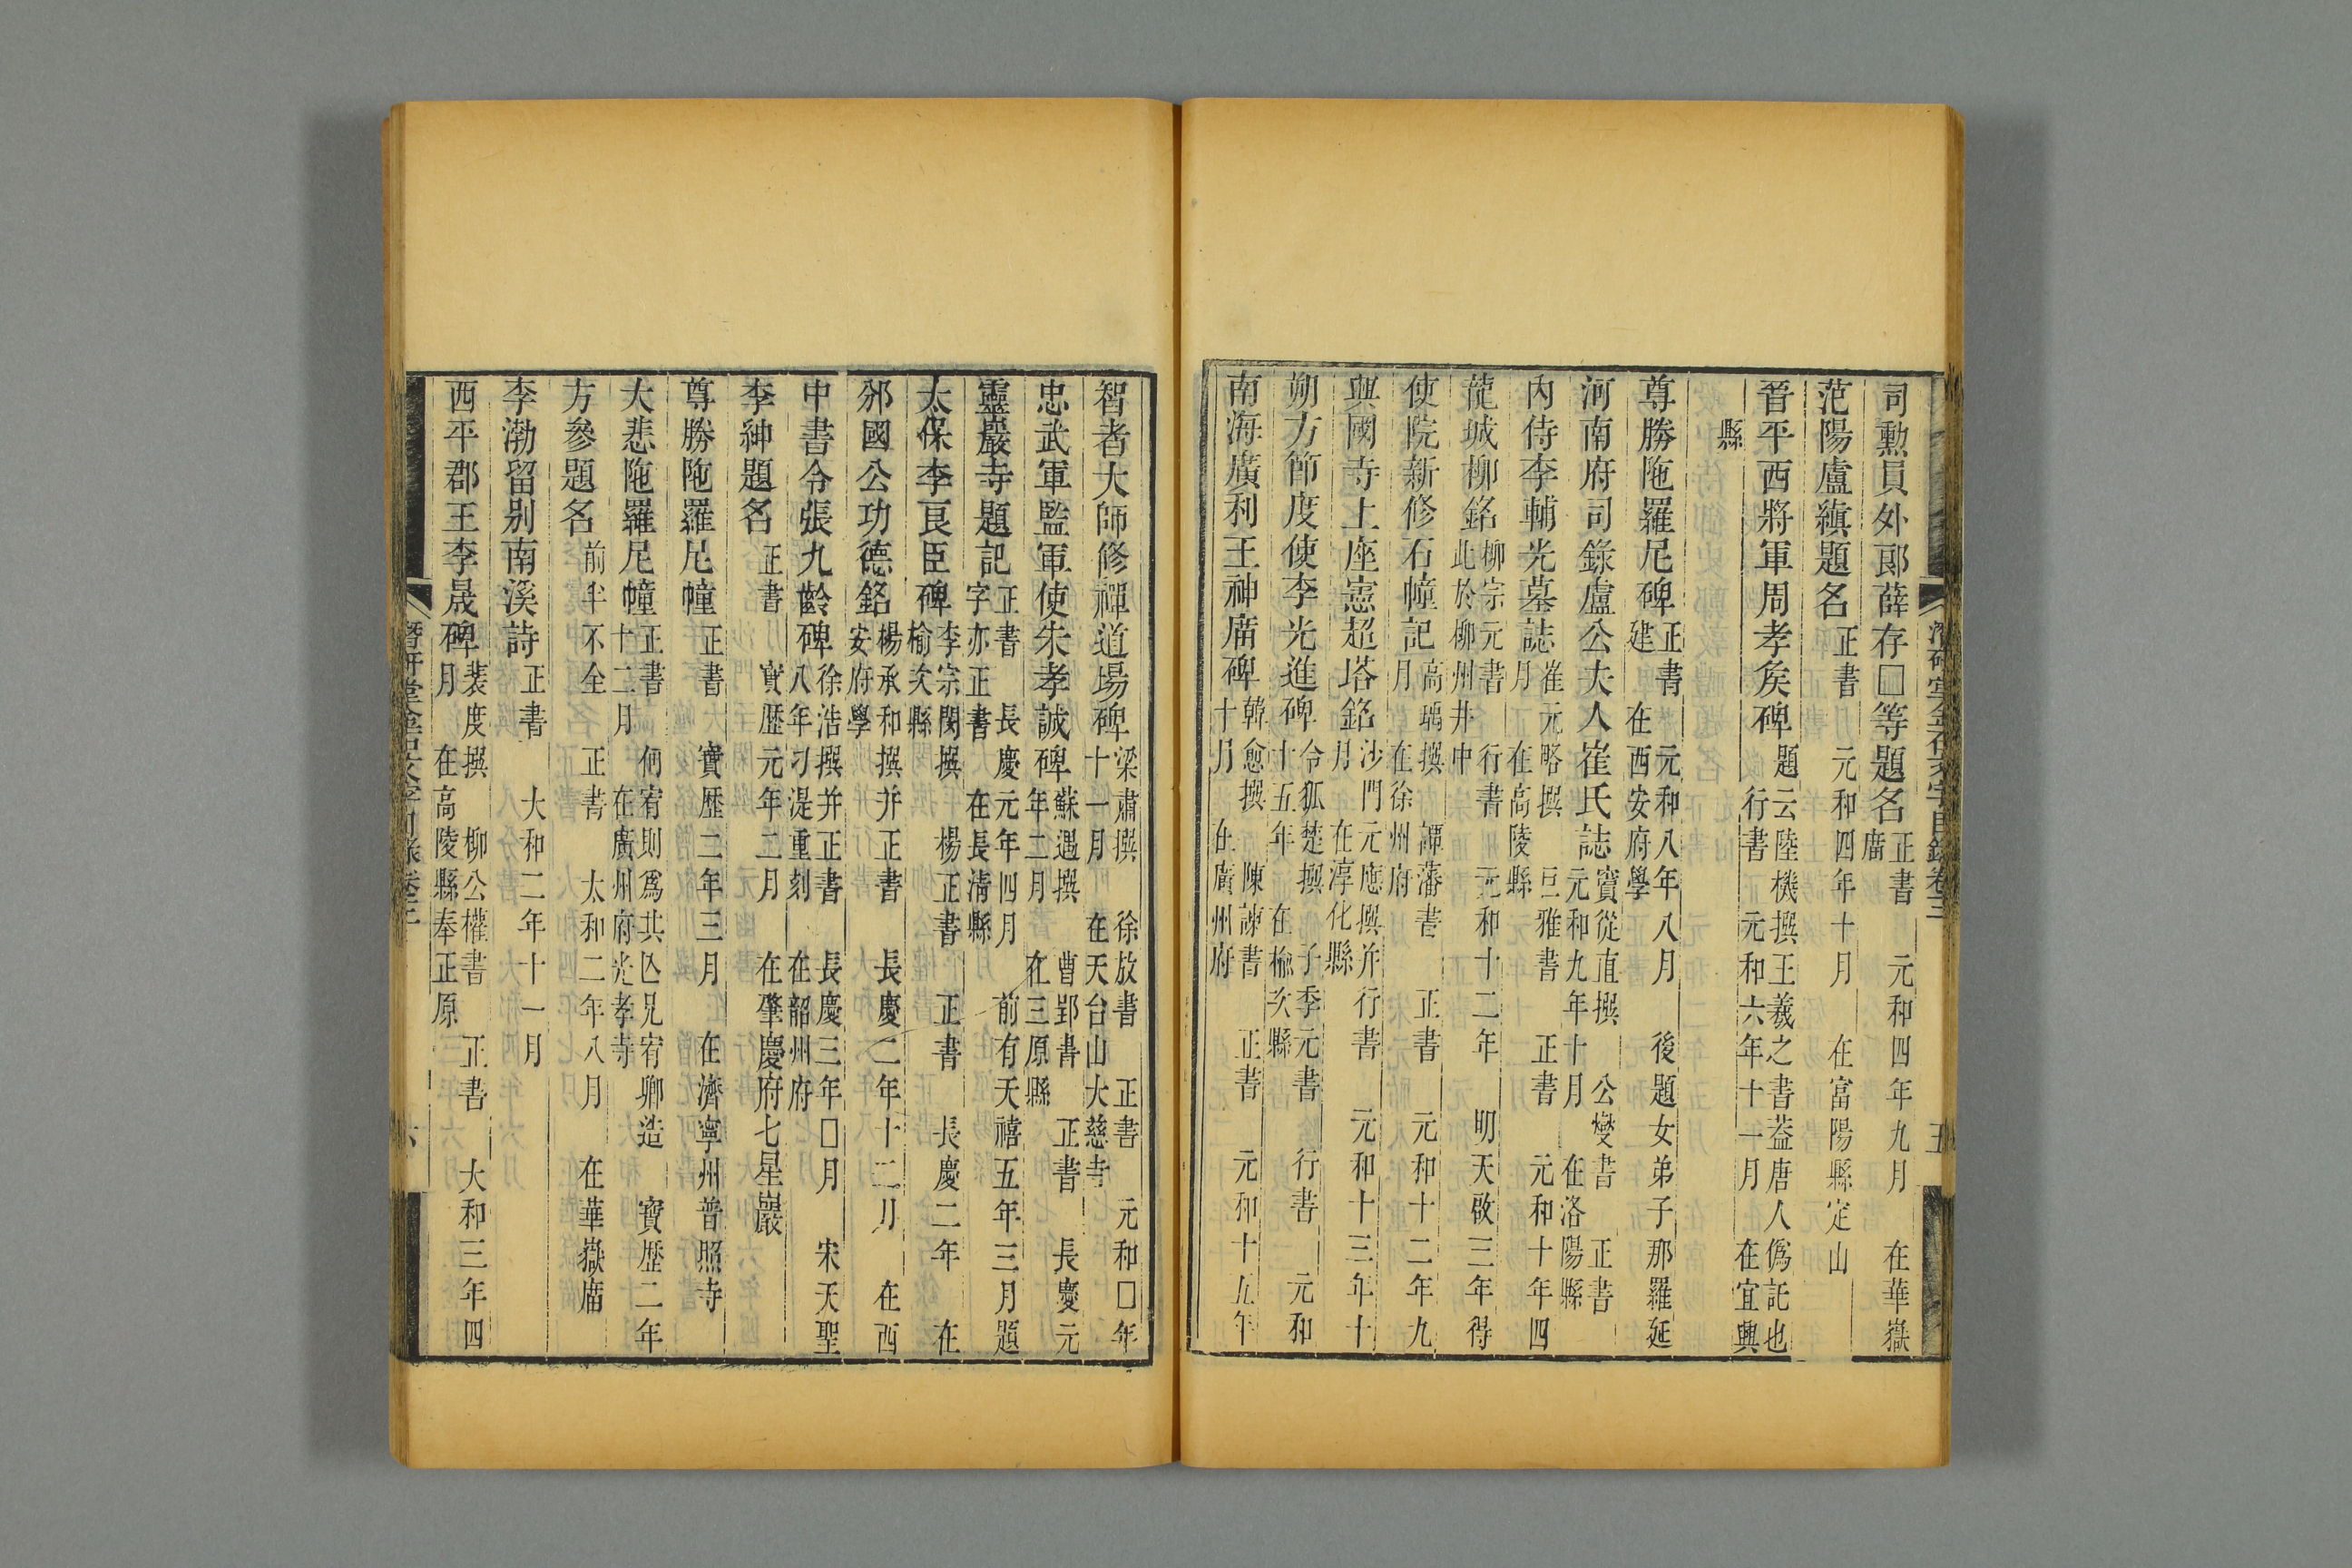 司勲員外郎薛存□等題名 正書 元和四年九月 在華嶽廟
范陽盧縝題名 正書 元和四年十月 在富陽縣定山
晉平西將軍周孝矦碑 題云陸機撰王羲之書葢唐人僞託也 行書 元和六年十一月 在宜興
縣
尊勝陁羅尼碑 正書 元和八年八月 後題女弟子那羅延建 在西安府學
河南府司錄盧公夫人崔氏誌 竇從直撰 公燮書 正書 元和九年十月 在洛陽縣
內侍李輔光墓誌 崔元略撰 巨雅書 正書 元和十年四月 在高陵縣
龍城柳銘 柳宗元書 行書 元和十二年 明天啟三年得此於柳州井中
使院新修石幢記 高瑀撰 譚藩書 正書 元和十二年九月 在徐州府
興國寺上座憲超塔銘 沙門元應撰并行書 元和十三年十月 在淳化縣
朔方節度使李光進碑 令狐楚撰 子季元書 行書 元和十五年 在榆次縣
南海廣利王神廟碑 韓愈撰 陳諫書 正書 元和十五年十月 在廣州府
潛硏堂金石文字目錄卷三 五
智者大師修禪道場碑 梁肅撰 徐放書 正書 元和□年十一月 在天台山大慈寺
忠武軍監軍使朱孝誠碑 蘇遇撰 曹郢書 正書 長慶元年二月 在三原縣
靈巖寺題記 正書 長慶元年四月 前有天禧五年三月題字亦正書 在長淸縣
太保李良臣碑 李宗閔撰 楊正書 正書 長慶二年 在榆次縣
邠國公功德銘 楊承和撰并正書 長慶二年十二月 在西安府學
中書令張九齡碑 徐浩撰并正書 長慶三年□月 宋天聖八年刁湜重刻 在韶州府
李紳題名 正書 寶歷元年二月 在肇慶府七星巖
尊勝陁羅尼幢 正書 寶歷二年三月 在濟寧州普照寺
大悲陁羅尼幢 正書 何宥則爲其亾兄宥卿造 寶歷二年十二月 在廣州府光孝寺
方參題名 前半不全 正書 太和二年八月 在華嶽廟
李渤留别南溪詩 正書 大和二年十一月
西平郡王李晟碑 裴度撰 柳公權書 正書 大和三年四月 在高陵縣奉正原
潛硏堂金石文字目錄卷三 六